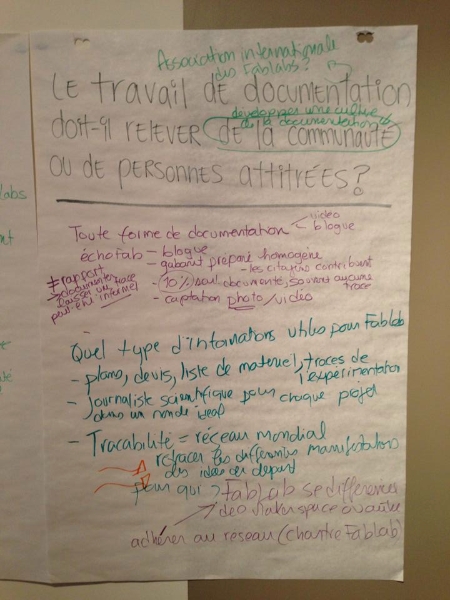 Association internationale
des Fablabs?
LE travail de documentation
développer une culture
de la documentation
doit-il relever de la communauté
ou de personnes attitrées?
labs
Toute forme de documentation
video
blogue
échofab - blogue
- gabarit préparé homogène
- les citoyens contribuent
- 10% seul documenté, souvent aucune
trace
- captation photo/video
≠ rapport
documenter
laisser une trace
peut être informel
Quel type d'informations utiles pour Fablab
- plans, devis, liste de materiel, traces de
l'expérimentation
- Journaliste scientifique pour chaque projet
dans un monde ideal
- Tracabilité = réseau mondial
retracer les différentes manifestations
des idées de depart
pour qui? FabLab se différencie
des makerspace ou autre
adhérer au reseau (chartre Fablab)